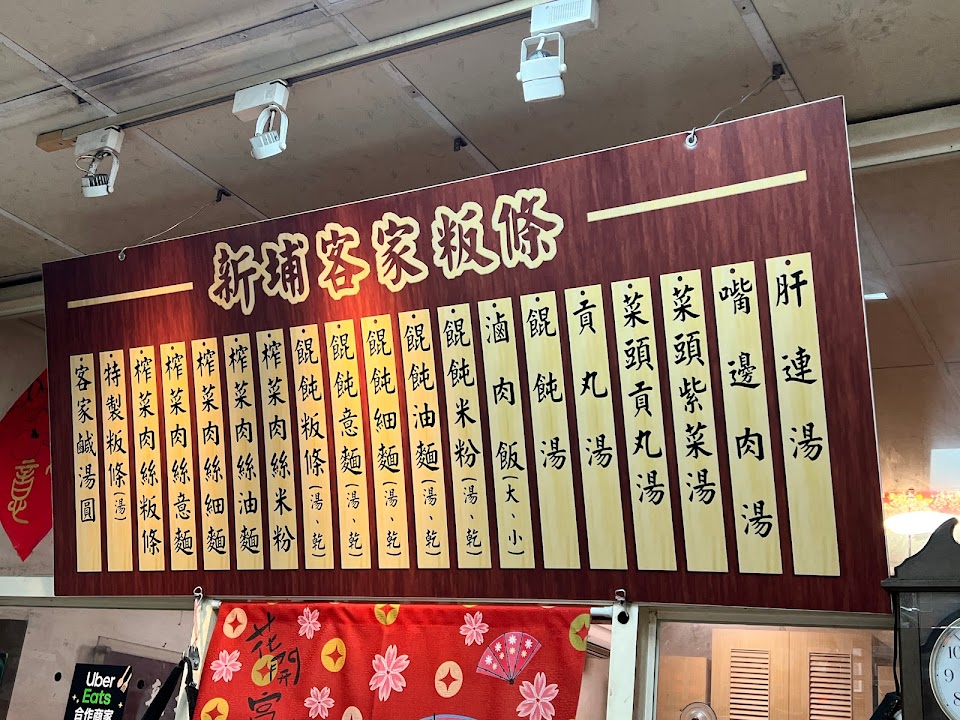 新埔客家粄條
肝連湯
嘴邊肉湯
菜頭紫菜湯
菜頭貢丸湯
貢丸湯
餛飩湯
滷肉飯(大、小)
餛飩米粉(湯、乾)
餛飩油麵(湯、乾)
餛飩細麵(湯、乾)
餛飩意麵(湯、乾)
餛飩粄條(湯、乾)
榨菜肉絲米粉
榨菜肉絲油麵
榨菜肉絲細麵
榨菜肉絲意麵
榨菜肉絲粄條
特製粄條(湯)
客家鹹湯圓
意
花開富
Uber
Eats
合作商家
10
9
8